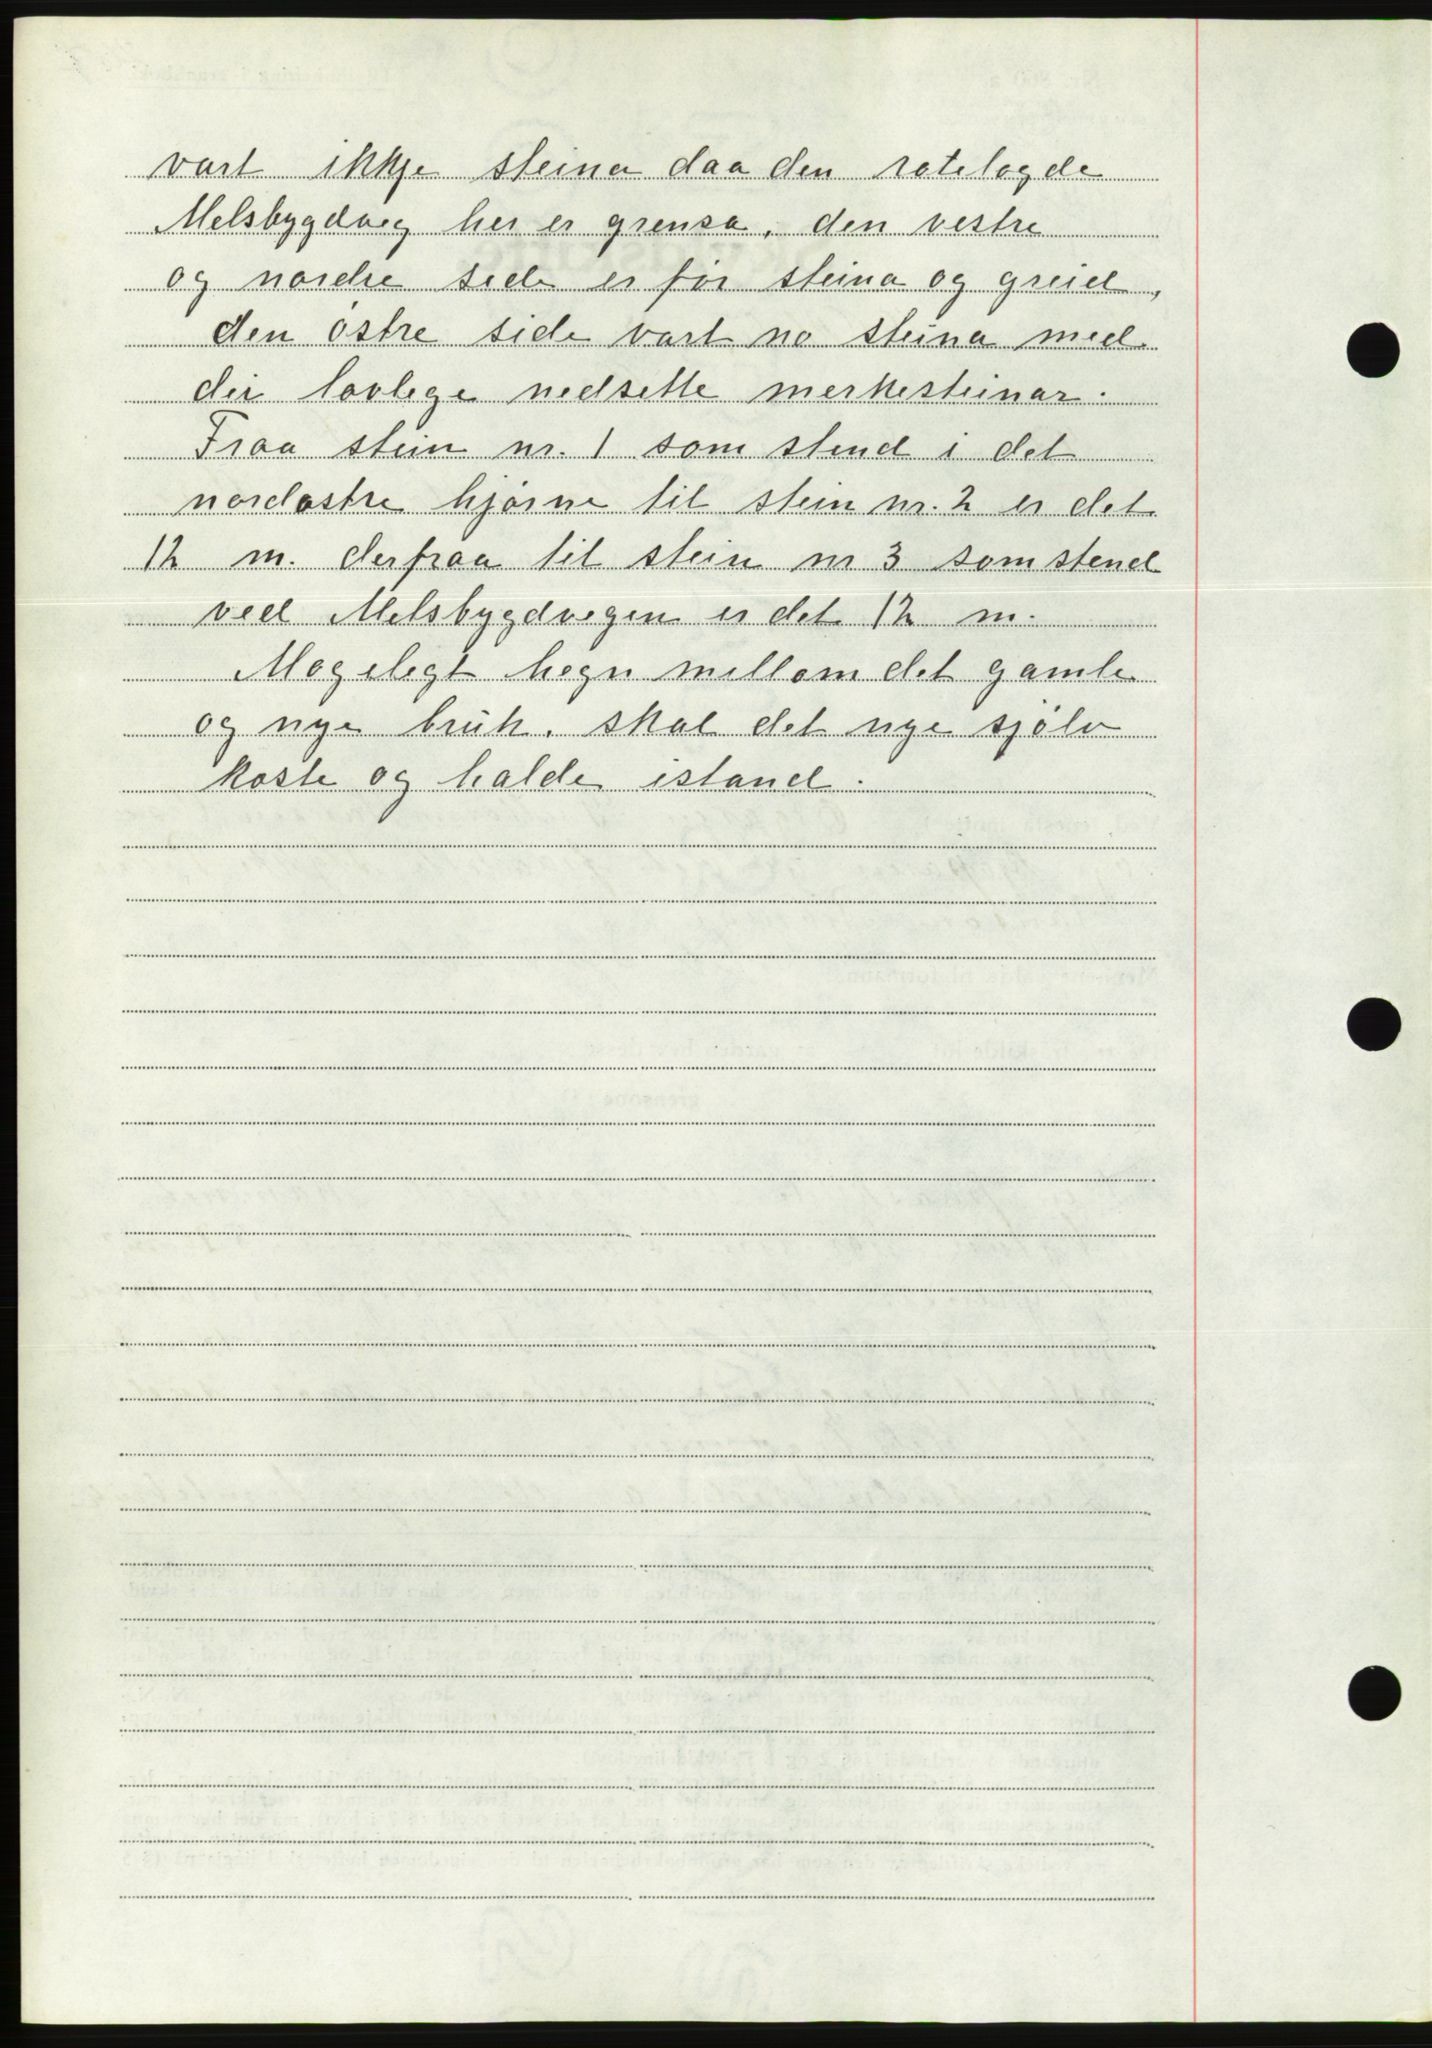 vart ikkje steina daa den rotelagde
Melsbygdveg her er grensa, den vestre
og nordre side er før steina og greid,
den østre side vart no steina med
dei lovlege nedsette merkesteinar.
Fraa stein nr. 1 som stend i det
nordøstre hjørne til stein nr. 2 er det
12 m. derfraa til stein nr 3 som stend
ved Melsbygdvegen er det 12 m.
Mogelegt hegn mellom det gamle
og nye bruk. skal det nye sjølv
koste og halde istand.